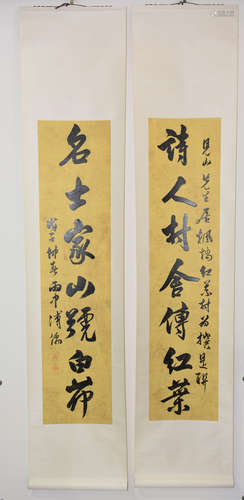 詩人村舍傳紅葉
見山先生居楓橋紅葉村為撰是聯
名士家山號白茆
戊子仲春雨中溥儒